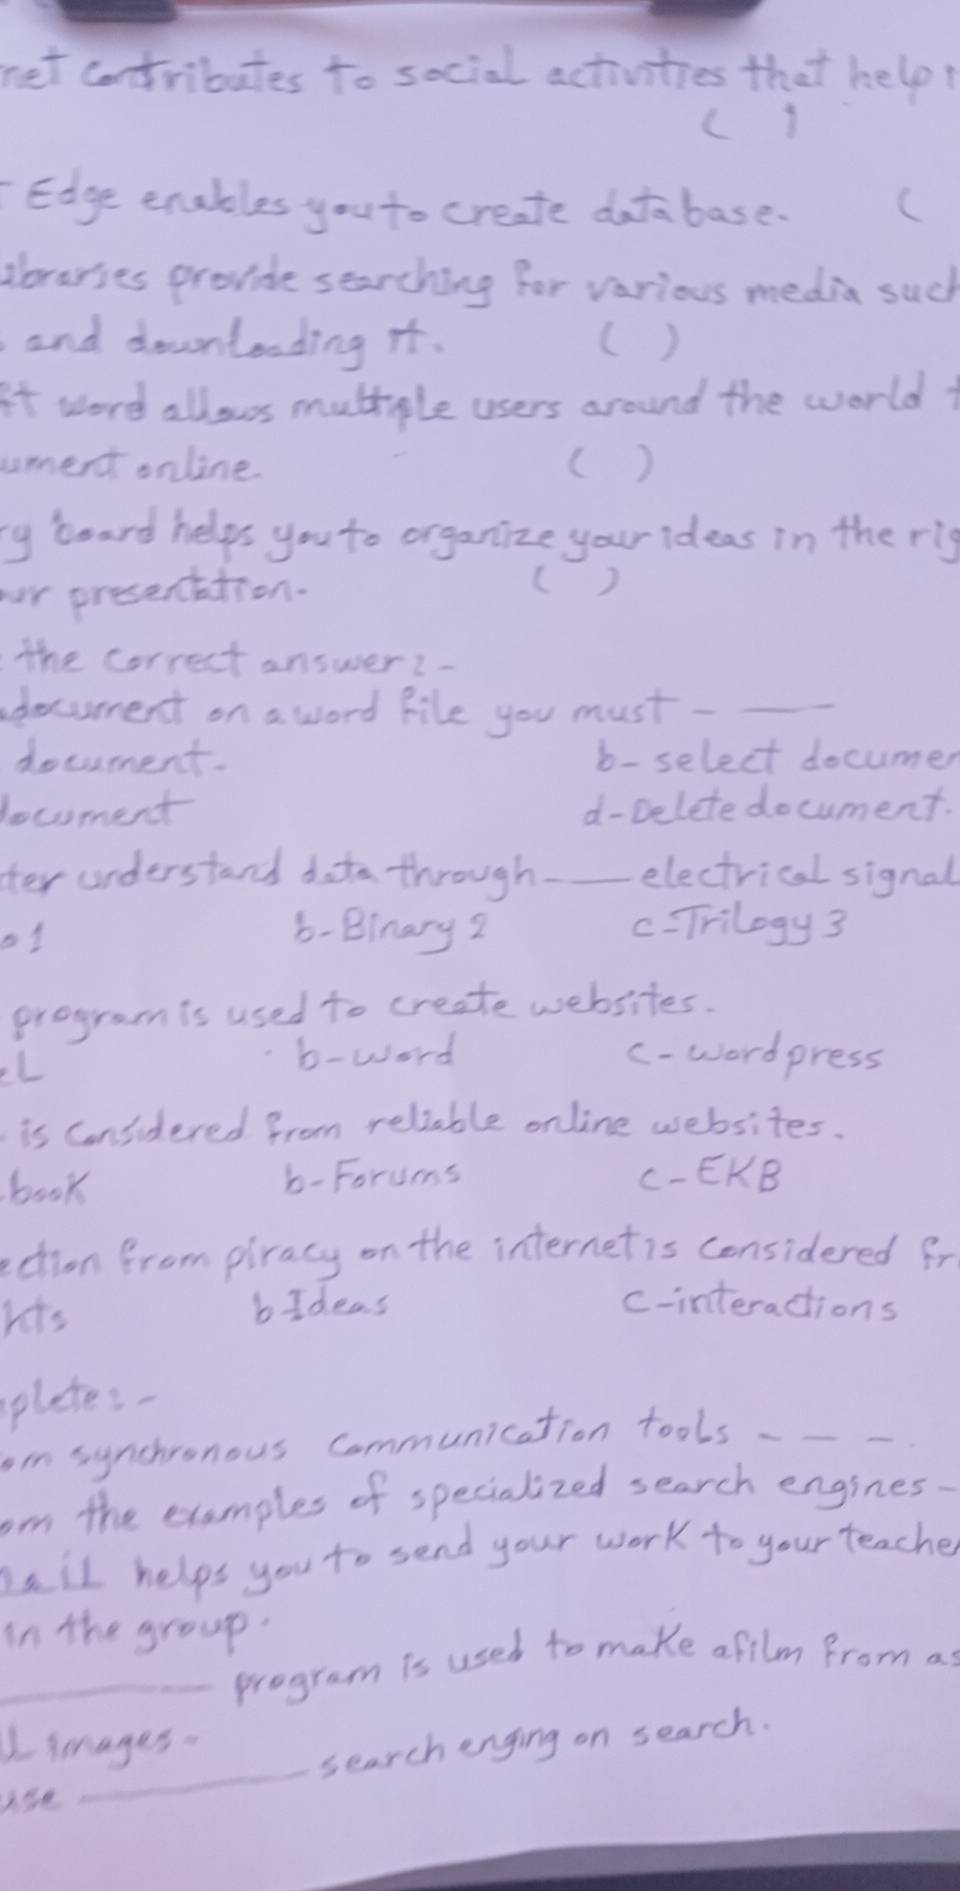 net contributes to social activities that help
( )
Edge enables you to create database. (
ibraries provide searching for various media such
and downloading it. ( )
ft word allows multiple users around the world t
ument online. ( )
ry board helps you to organize your ideas in the rig
our presentation. ( )
the correct answer:-
document on a word file you must - ——
document. b- select documen
document d- Delete document.
ter understand data through - —— electrical signal
o 1 b- Binary 2 c- Trilogy 3
program is used to create websites.
eL b- word c- wordpress
- is considered from reliable online websites.
book b- Forums c- EKB
ection from piracy on the internet is considered fr
hts b Ideas c- interactions
mplete:-
om synchronous communication tools - - -.
om the examples of specialized search engines -
mail helps you to send your work to your teacher
in the group.
______ program is used to make a film from as
ll images.
use ______ search enging on search.